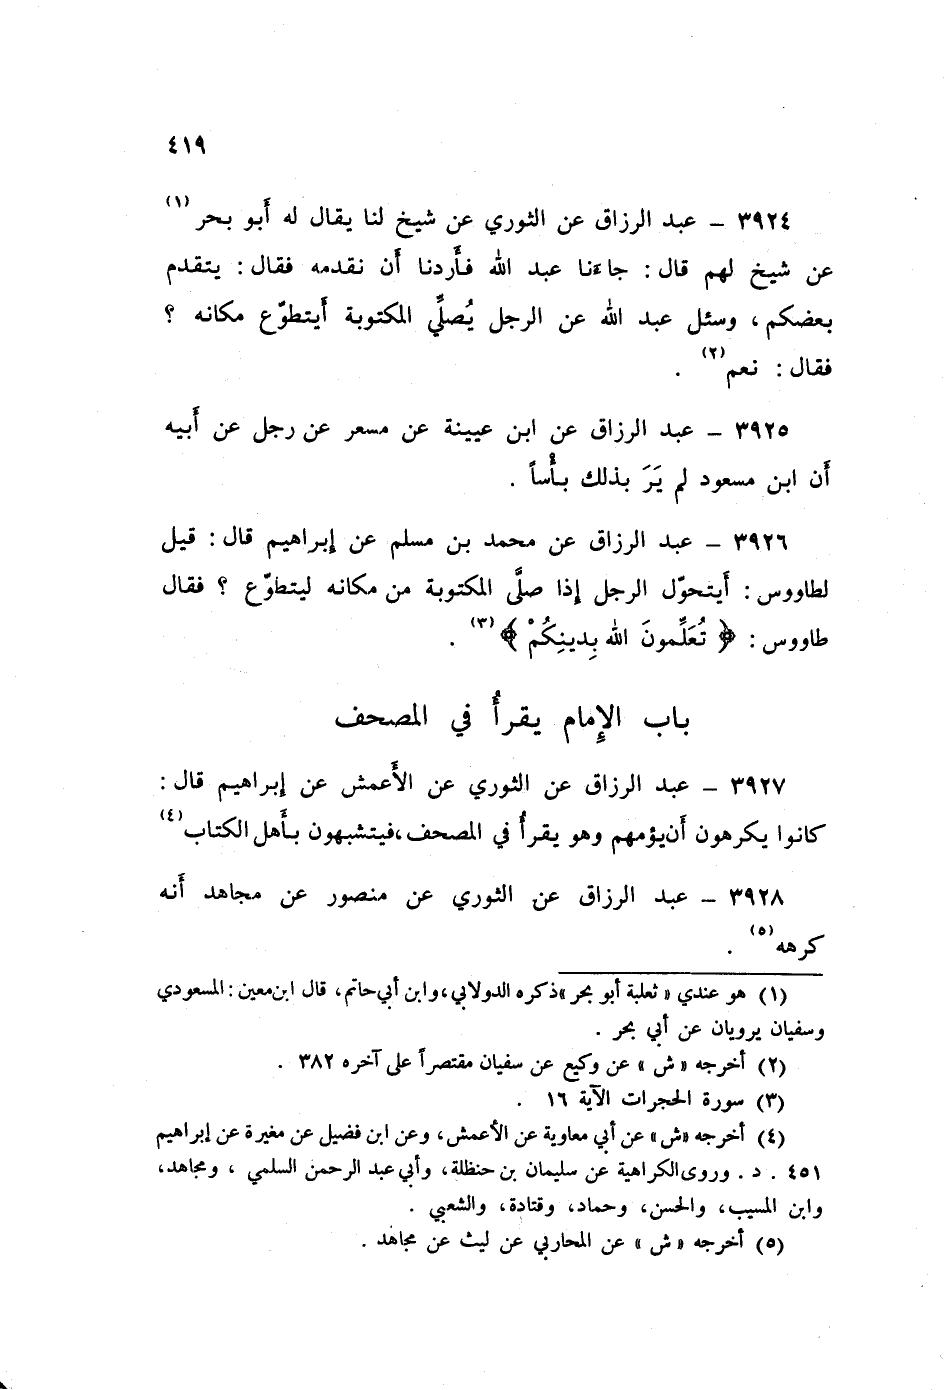 ٤١٩
٣٩٢٤ – عبد الرزاق عن الثوري عن شيخ لنا يقال له أَبو بحر (١)
عن شيخ لهم قال : جاءنا عبد الله فأَردنا أَن نقدمه فقال : يتقدم
بعضكم ، وسئل عبد الله عن الرجل يُصلِّي المكتوبة أَيتطوّع مكانه ؟
فقال : نعم (٢) .
٣٩٢٥ – عبد الرزاق عن ابن عيينة عن مسعر عن رجل عن أَبيه
أَن ابن مسعود لم يَرَ بذلك بأْساً .
٣٩٢٦ – عبد الرزاق عن محمد بن مسلم عن إبراهيم قال : قيل
لطاووس : أَيتحوّل الرجل إذا صلَّى المكتوبة من مكانه ليتطوّع ؟ فقال
طاووس : ﴿ تُعَلِّمونَ الله بِدينِكُمْ ﴾ (٣) .
باب الإِمام يقرأُ في المصحف
٣٩٢٧ – عبد الرزاق عن الثوري عن الأَعمش عن إبراهيم قال :
كانوا يكرهون أَن يؤمهم وهو يقرأُ في المصحف ، فيتشبهون بأَهل الكتاب (٤)
٣٩٢٨ – عبد الرزاق عن الثوري عن منصور عن مجاهد أَنه
كرهه (٥) .
(١) هو عندي « ثعلبة أبو بحر » ذكره الدولابي ، وابن أبي حاتم ، قال ابن معين : المسعودي
وسفيان يرويان عن أبي بحر .
(٢) أخرجه « ش » عن وكيع عن سفيان مقتصراً على آخره ٣٨٢ .
(٣) سورة الحجرات الآية ١٦ .
(٤) أخرجه «ش» عن أبي معاوية عن الأعمش ، وعن ابن فضيل عن مغيرة عن إبراهيم
٤٥١ . د . وروى الكراهية عن سليمان بن حنظلة ، وأبي عبد الرحمن السلمي ، ومجاهد ،
وابن المسيب ، والحسن ، وحماد ، وقتادة ، والشعبي .
(٥) أخرجه « ش » عن المحاربي عن ليث عن مجاهد .